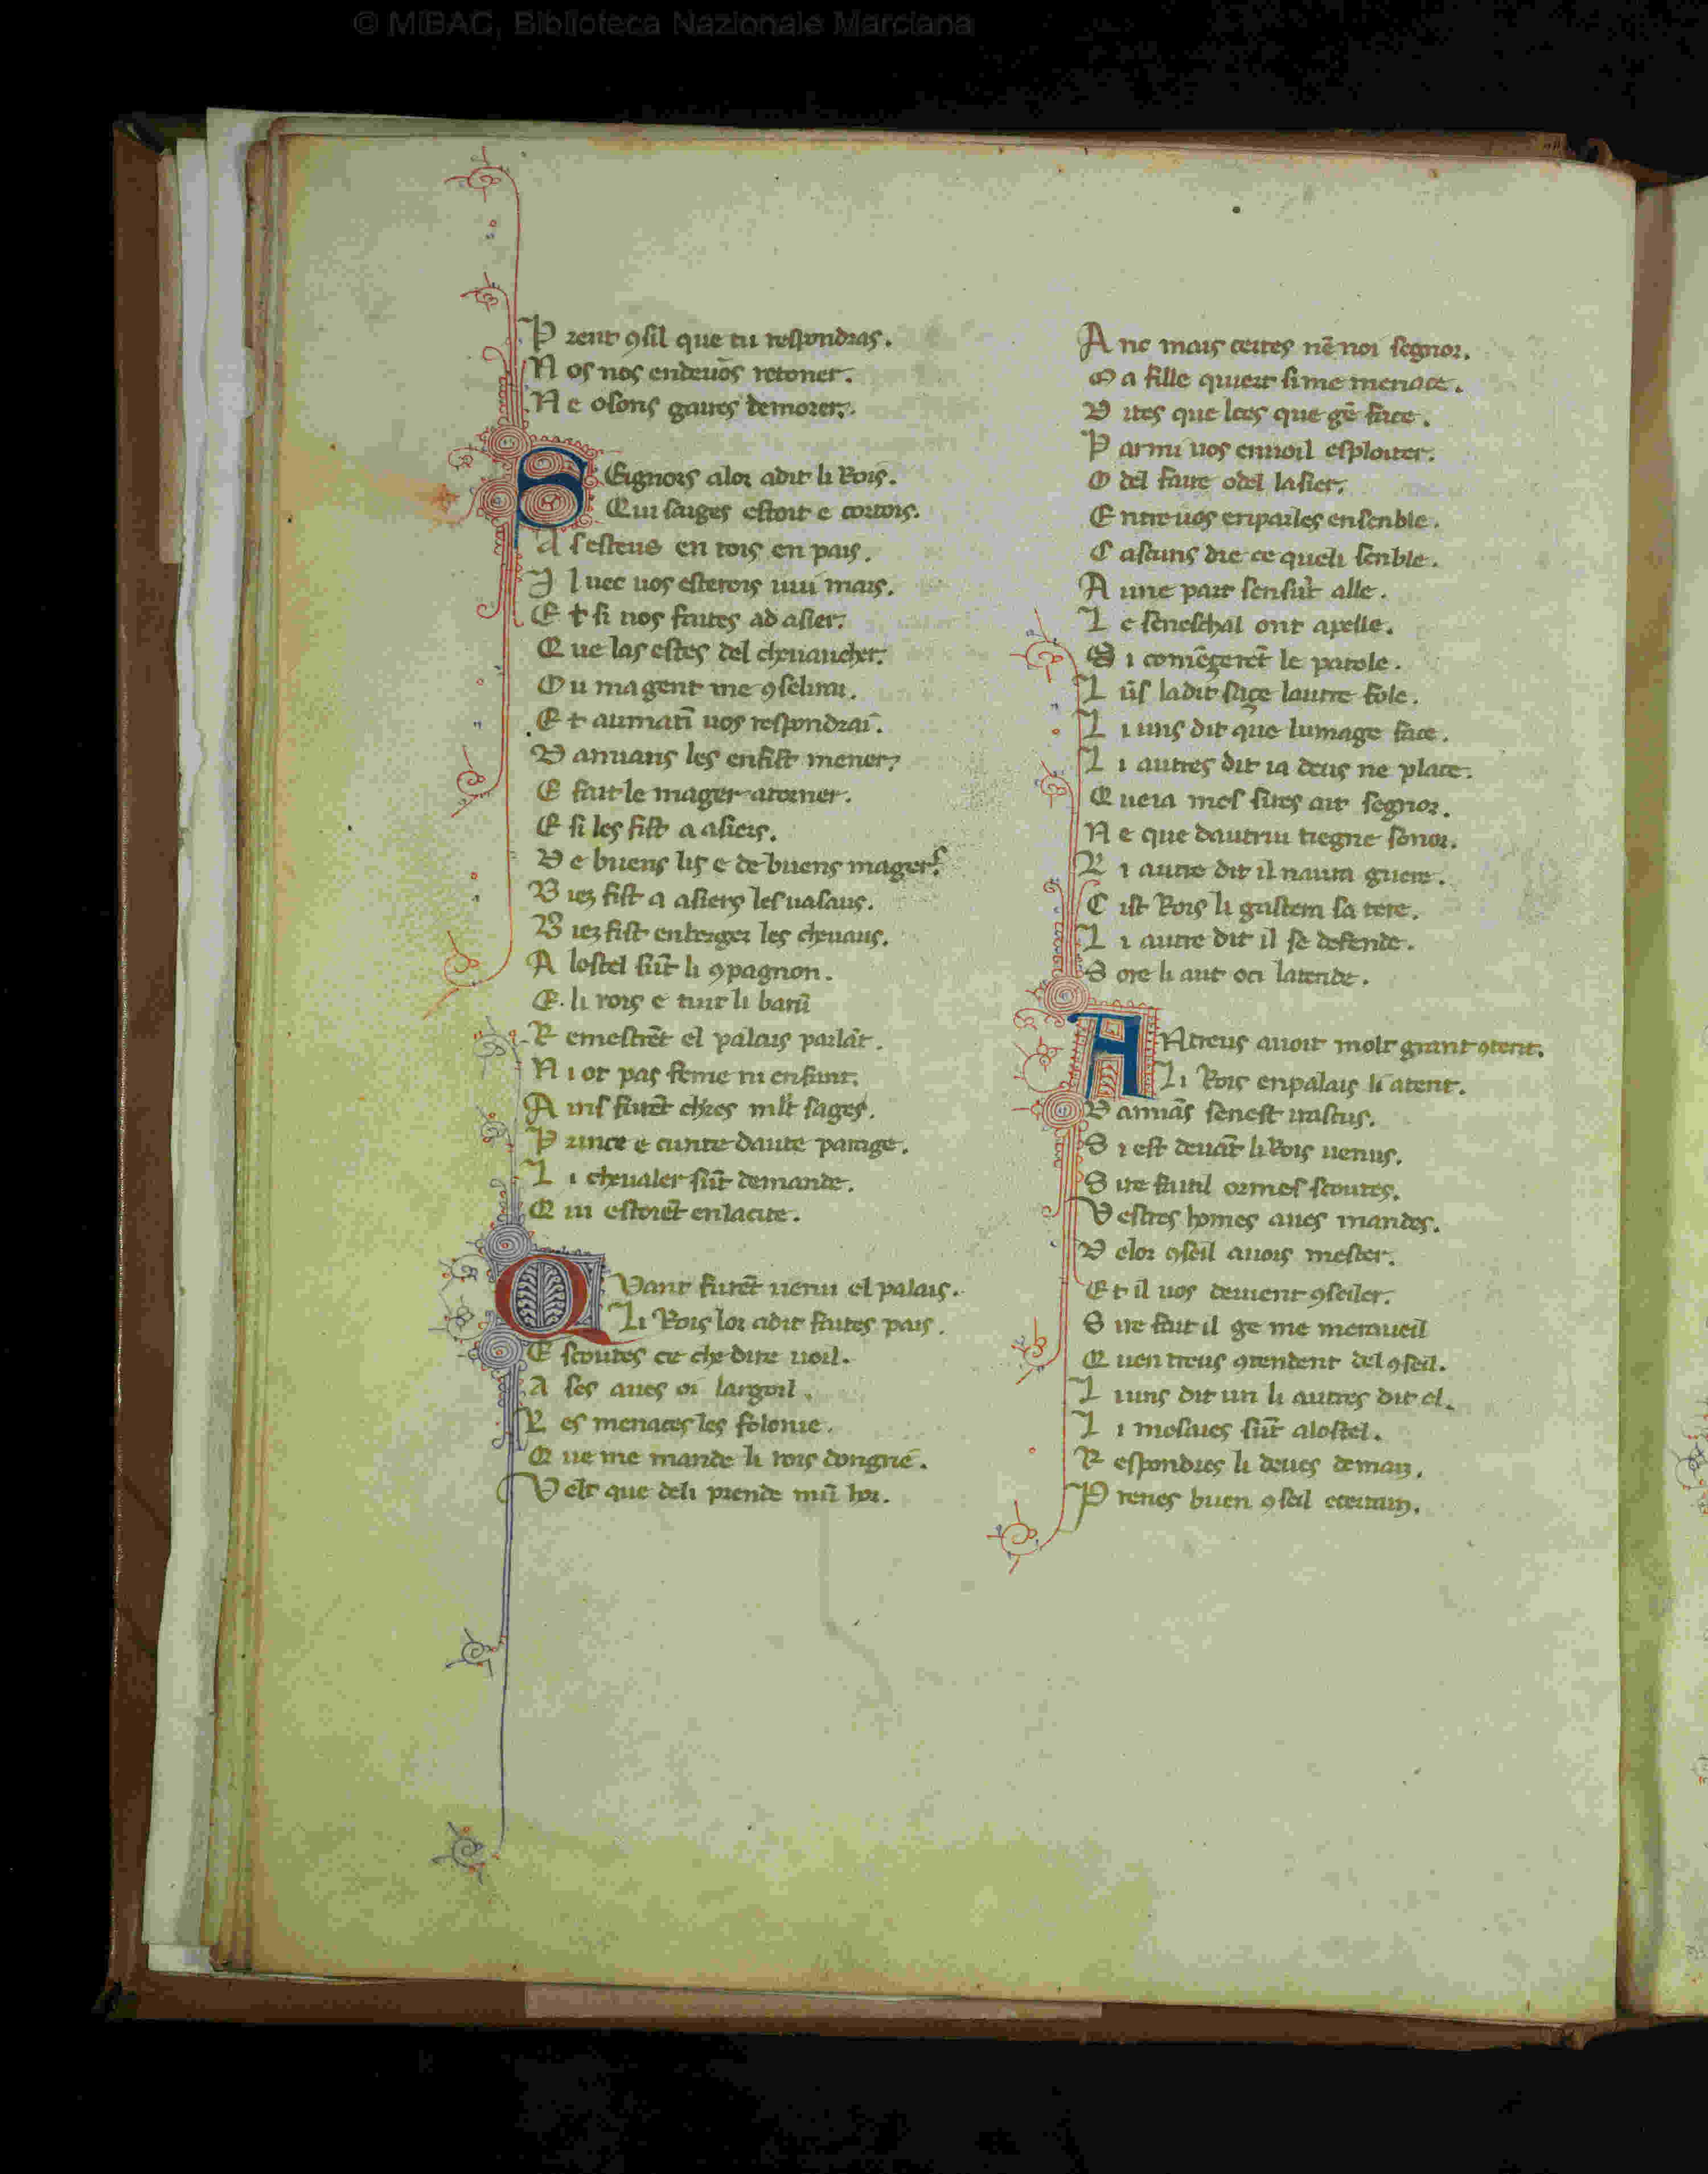 © MiBAC, Biblioteca Nazionale Marciana
P rent ꝯsil que tu respondras.
N os nos endeuōs retoner.
N e osons gaires demorer.
SEignors alor adit li Rois.
Qui saiges estoit e cortois.
A sesteus en tois en pais.
I luec uos esterois uiu mais.
E t si uos faites ad asier.
Q ue las estes del cheuaucher.
O u ma gent me ꝯselirai.
E t aumatī uos respondrai.
D anuans les enfist mener.
E fait le mager atorner.
E si les fist a asiers.
D e buens lis e de buens magers.
B iez fist a asiers les uasaus.
B iez fist enberger les cheuaus.
A lostel sūt li ꝯpagnon.
E. li rois e tuit li barū
R emestrēt el palais parlāt.
N i ot pas feme ni enfant.
A ins furēt chres mlt sages.
P rince e cunte daute parage.
L i cheualer sūt demande.
Q ui estoiēt enlacite.
QVant furēt uenu el palais.
Li Rois lor adit faites pais.
E scoutes ce che dire uoil.
A ses aues oi largoil.
L es menaces les folonie.
Q ue me mande li rois dongrie.
V elt que deli prende mū hor.
A nc mais certes nē noi segnor.
M a fille quiert si me menace.
D ites que lees que gē face.
P armi uos enuoil esploiter.
O del faire odel lasier.
E ntre uos enparles ensenble.
C ascuns die ce queli senble.
A une part sensūt alle.
L e seneschal ont apelle.
S i comēgerēt le parole.
L ūs ladit sage lautre fole.
L i uns dit que lumage face.
L i autres dit ia deus ne place.
Q ueia mes sires ait segnor.
N e que dautrui tiegne sonor.
L i autre dit il naura guere.
C ist Rois li gastera sa tere.
L i autre dit il se defende.
S ore li aut oci latende.
ANtreus auoit molt grant ꝯtent.
Li Rois enpalais li atent.
D anuās senest uastus.
S i est deuāt li Rois uenus.
S ire faitil ormes scoutes.
V estres homes aues mandes.
D elor ꝯseil auois mester.
E t il uos deuient ꝯseiler.
S ire fait il ge me meraueil
Q uen treus ꝯtendent del ꝯseil.
L iuns dit un li autres dit el.
L i mesaies sūt alostel.
R espondres li deues deman.
P renes buen ꝯseil ecertain.